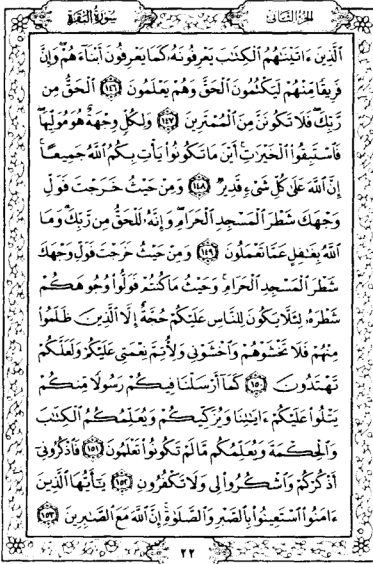 الجزء الثاني
سورة البقرة
الَّذِينَ ءَاتَيْنَٰهُمُ الْكِتَٰبَ يَعْرِفُونَهُ كَمَا يَعْرِفُونَ أَبْنَآءَهُمْ وَإِنَّ
فَرِيقًا مِّنْهُمْ لَيَكْتُمُونَ الْحَقَّ وَهُمْ يَعْلَمُونَ ١٤٦ الْحَقُّ مِن
رَّبِّكَ فَلَا تَكُونَنَّ مِنَ الْمُمْتَرِينَ ١٤٧ وَلِكُلٍّ وِجْهَةٌ هُوَ مُوَلِّيهَا
فَاسْتَبِقُوا۟ الْخَيْرَٰتِ أَيْنَ مَا تَكُونُوا۟ يَأْتِ بِكُمُ اللَّهُ جَمِيعًا
إِنَّ اللَّهَ عَلَىٰ كُلِّ شَىْءٍ قَدِيرٌ ١٤٨ وَمِنْ حَيْثُ خَرَجْتَ فَوَلِّ
وَجْهَكَ شَطْرَ الْمَسْجِدِ الْحَرَامِ وَإِنَّهُ لَلْحَقُّ مِن رَّبِّكَ وَمَا
اللَّهُ بِغَٰفِلٍ عَمَّا تَعْمَلُونَ ١٤٩ وَمِنْ حَيْثُ خَرَجْتَ فَوَلِّ وَجْهَكَ
شَطْرَ الْمَسْجِدِ الْحَرَامِ وَحَيْثُ مَا كُنتُمْ فَوَلُّوا۟ وُجُوهَكُمْ
شَطْرَهُ لِئَلَّا يَكُونَ لِلنَّاسِ عَلَيْكُمْ حُجَّةٌ إِلَّا الَّذِينَ ظَلَمُوا۟
مِنْهُمْ فَلَا تَخْشَوْهُمْ وَاخْشَوْنِى وَلِأُتِمَّ نِعْمَتِى عَلَيْكُمْ وَلَعَلَّكُمْ
تَهْتَدُونَ ١٥٠ كَمَآ أَرْسَلْنَا فِيكُمْ رَسُولًا مِّنكُمْ
يَتْلُوا۟ عَلَيْكُمْ ءَايَٰتِنَا وَيُزَكِّيكُمْ وَيُعَلِّمُكُمُ الْكِتَٰبَ
وَالْحِكْمَةَ وَيُعَلِّمُكُم مَّا لَمْ تَكُونُوا۟ تَعْلَمُونَ ١٥١ فَاذْكُرُونِى
أَذْكُرْكُمْ وَاشْكُرُوا۟ لِى وَلَا تَكْفُرُونِ ١٥٢ يَٰٓأَيُّهَا الَّذِينَ
ءَامَنُوا۟ اسْتَعِينُوا۟ بِالصَّبْرِ وَالصَّلَوٰةِ إِنَّ اللَّهَ مَعَ الصَّٰبِرِينَ ١٥٣
٢٢